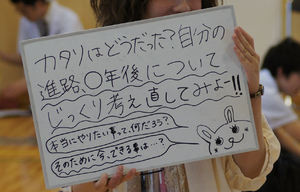 カタリはどうだった？自分の
進路、〇年後について
じっくり考え直してみよー!!
本当にやりたい事って、何だろう？
そのために今、できる事は…？